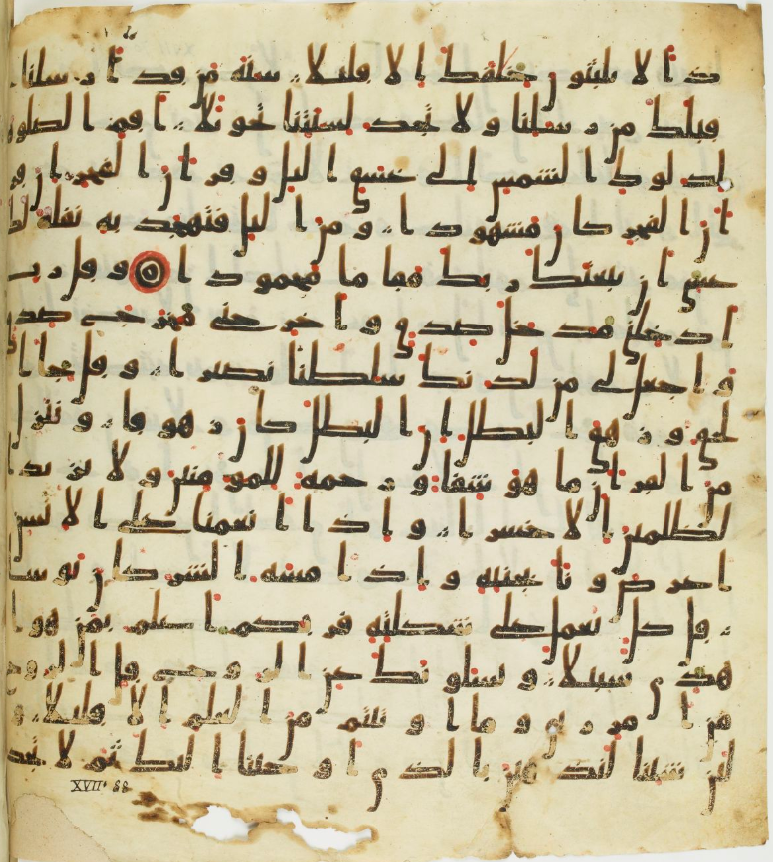 ذا لا يلبثون خلفك الا قليلا سنة من قد ارسلنا
قبلك من رسلنا ولا تجد لسنتنا تحويلا اقم الصلوة
لدلوك الشمس الى غسق اليل وقران الفجر ان قر
ان الفجر كان مشهودا ومن اليل فتهجد به نفلة لك
عسى ان يبعثك ربك مقاما محمودا وقل رب
ادخلنى مدخل صدق واخرجنى مخرج صدق
واجعل لى من لدنك سلطنا نصيرا وقل جا ا
لحق وزهق البطل ان البطل كان زهوقا وننزل
من القران ما هو شفا ورحمة للمومنين ولا يزيد ا
لظلمين الا خسارا واذا انعمنا على الانسن
اعرض ونا بجنبه واذا مسه الشر كان يوسا
قل كل يعمل على شكلته فربكم اعلم بمن هو ا
هدى سبيلا ويسلونك عن الروح قل الروح
من امر ربى وما اوتيتم من العلم الا قليلا و
لين شينا لنذهبن بالذى اوحينا اليك ثم لا تجد
XVII. 88